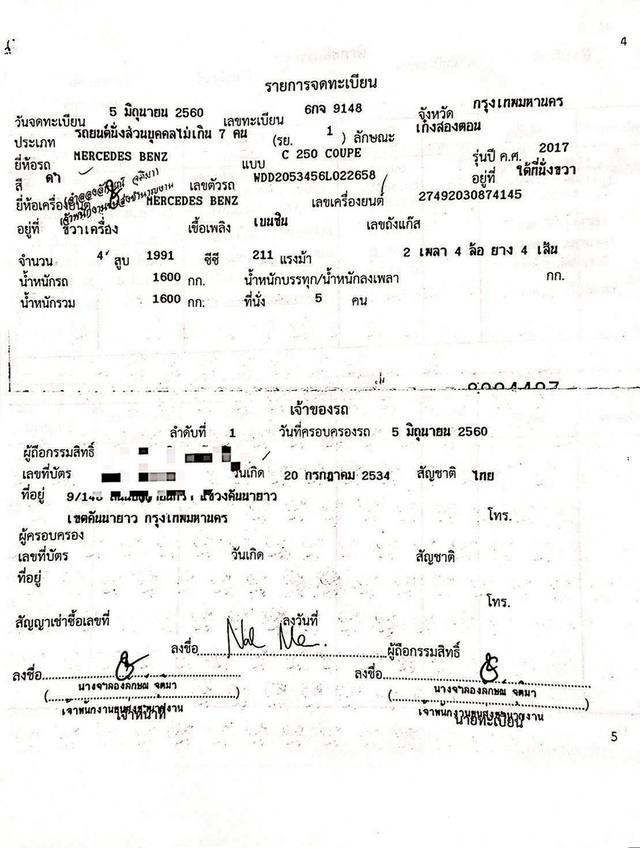 4
รายการจดทะเบียน
วันจดทะเบียน 5 มิถุนายน 2560 เลขทะเบียน 6กจ 9148 จังหวัด กรุงเทพมหานคร
ประเภท รถยนต์นั่งส่วนบุคคลไม่เกิน 7 คน (รย. 1 ) ลักษณะ เก๋งสองตอน
ยี่ห้อรถ MERCEDES BENZ แบบ C 250 COUPE รุ่นปี ค.ศ. 2017
สี ดำ เลขตัวรถ WDD2053456L022658 อยู่ที่ ใต้ที่นั่งขวา
ยี่ห้อเครื่องยนต์ MERCEDES BENZ เลขเครื่องยนต์ 27492030874145
อยู่ที่ ขวาเครื่อง เชื้อเพลิง เบนซิน เลขถังแก๊ส
จำนวน 4 สูบ 1991 ซีซี 211 แรงม้า 2 เพลา 4 ล้อ ยาง 4 เส้น
น้ำหนักรถ 1600 กก. น้ำหนักบรรทุก/น้ำหนักลงเพลา กก.
น้ำหนักรวม 1600 กก. ที่นั่ง 5 คน
เจ้าของรถ
ลำดับที่ 1 วันที่ครอบครองรถ 5 มิถุนายน 2560
ผู้ถือกรรมสิทธิ์
เลขที่บัตร วันเกิด 20 กรกฎาคม 2534 สัญชาติ ไทย
ที่อยู่ แขวงคันนายาว
เขตคันนายาว กรุงเทพมหานคร โทร.
ผู้ครอบครอง
เลขที่บัตร วันเกิด สัญชาติ
ที่อยู่
โทร.
สัญญาเช่าซื้อเลขที่ ลงวันที่
ลงชื่อ ผู้ถือกรรมสิทธิ์
ลงชื่อ ลงชื่อ
นางจำลองลักษณ์ จติมา นางจำลองลักษณ์ จติมา
เจ้าหน้าที่ นายทะเบียน
5